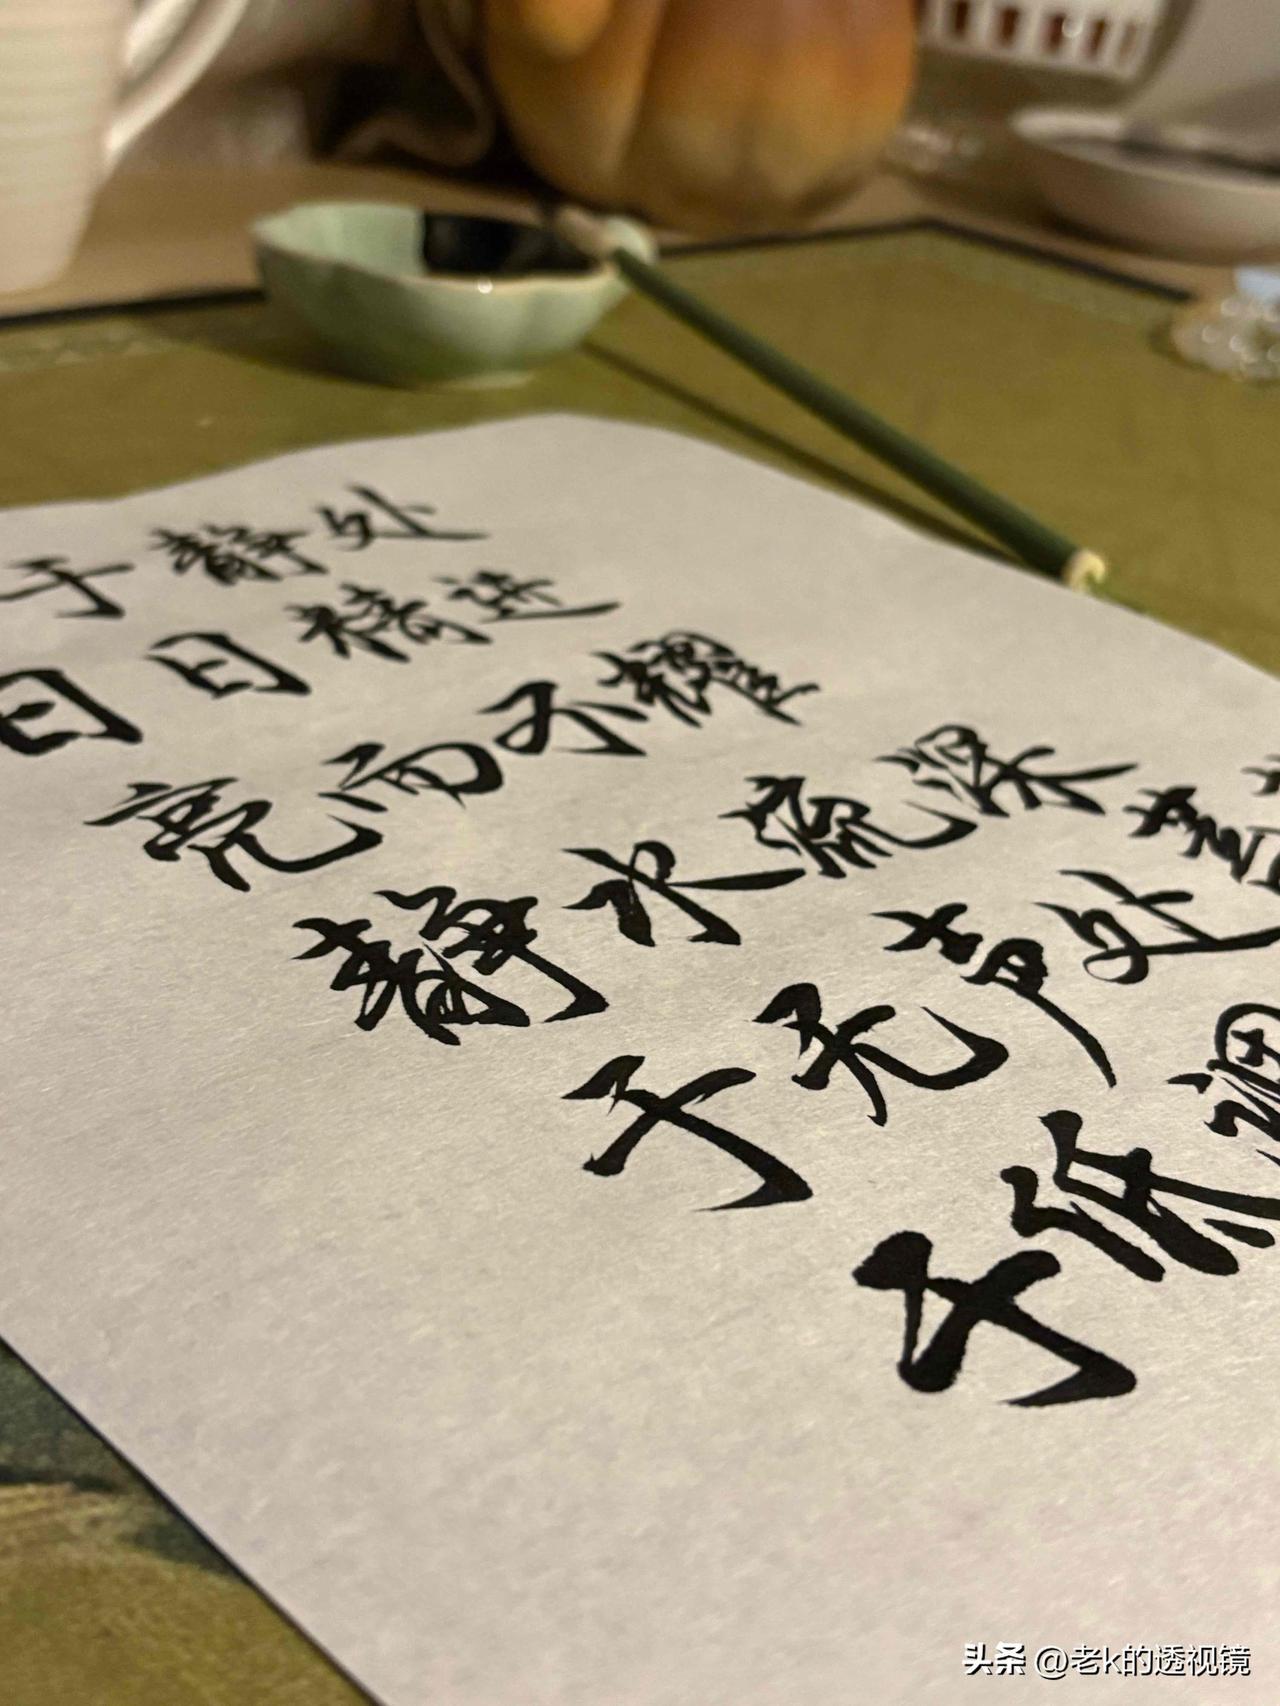 于静处
日日精进
亮而不耀
静水流深
于无声处
于
头条 @老k的透视镜